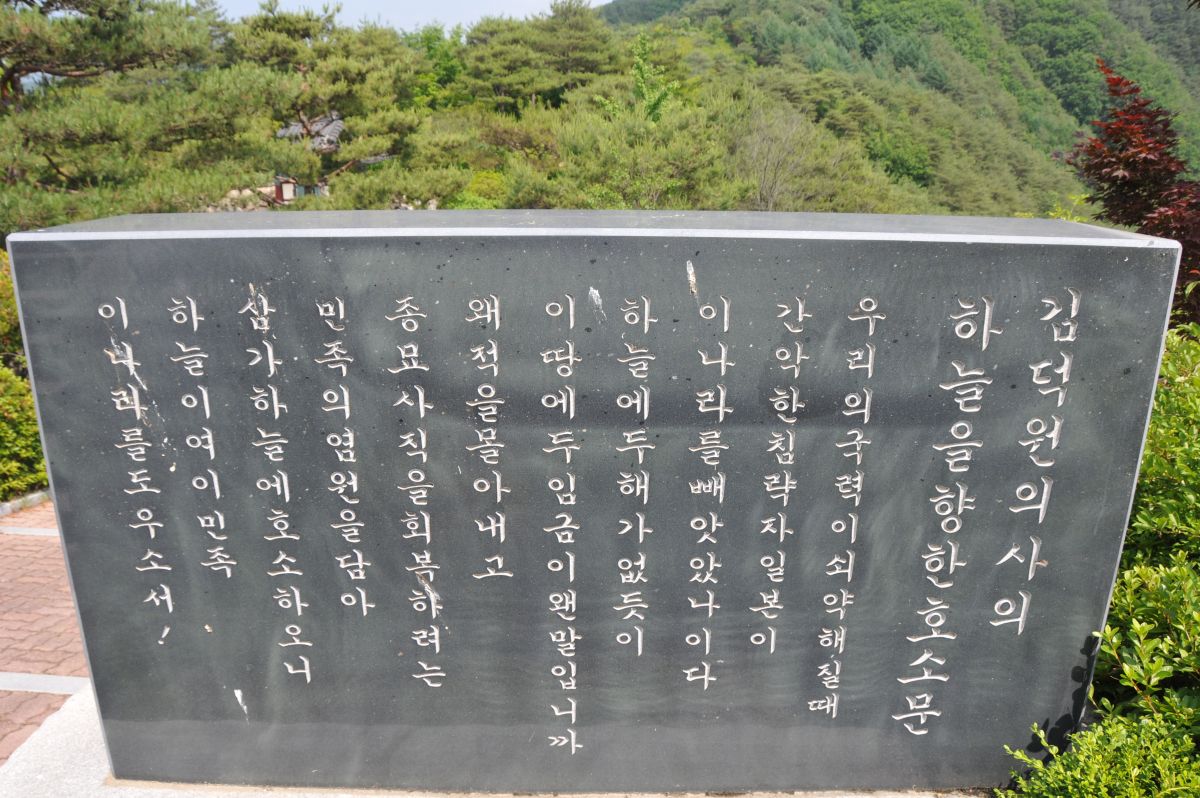 김덕원의사의
하늘을향한호소문
우리의국력이쇠약해질때
간악한침략자일본이
이나라를빼앗았나이다
하늘에두해가없듯이
이땅에두임금이왠말입니까
왜적을몰아내고
종묘사직을회복하려는
민족의염원을담아
삼가하늘에호소하오니
하늘이여이민족
이나라를도우소서!